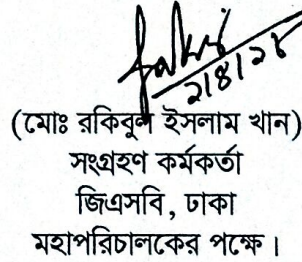 (মোঃ রকিবুল ইসলাম খান)
সংগ্রহণ কর্মকর্তা
জিএসবি, ঢাকা
মহাপরিচালকের পক্ষে।